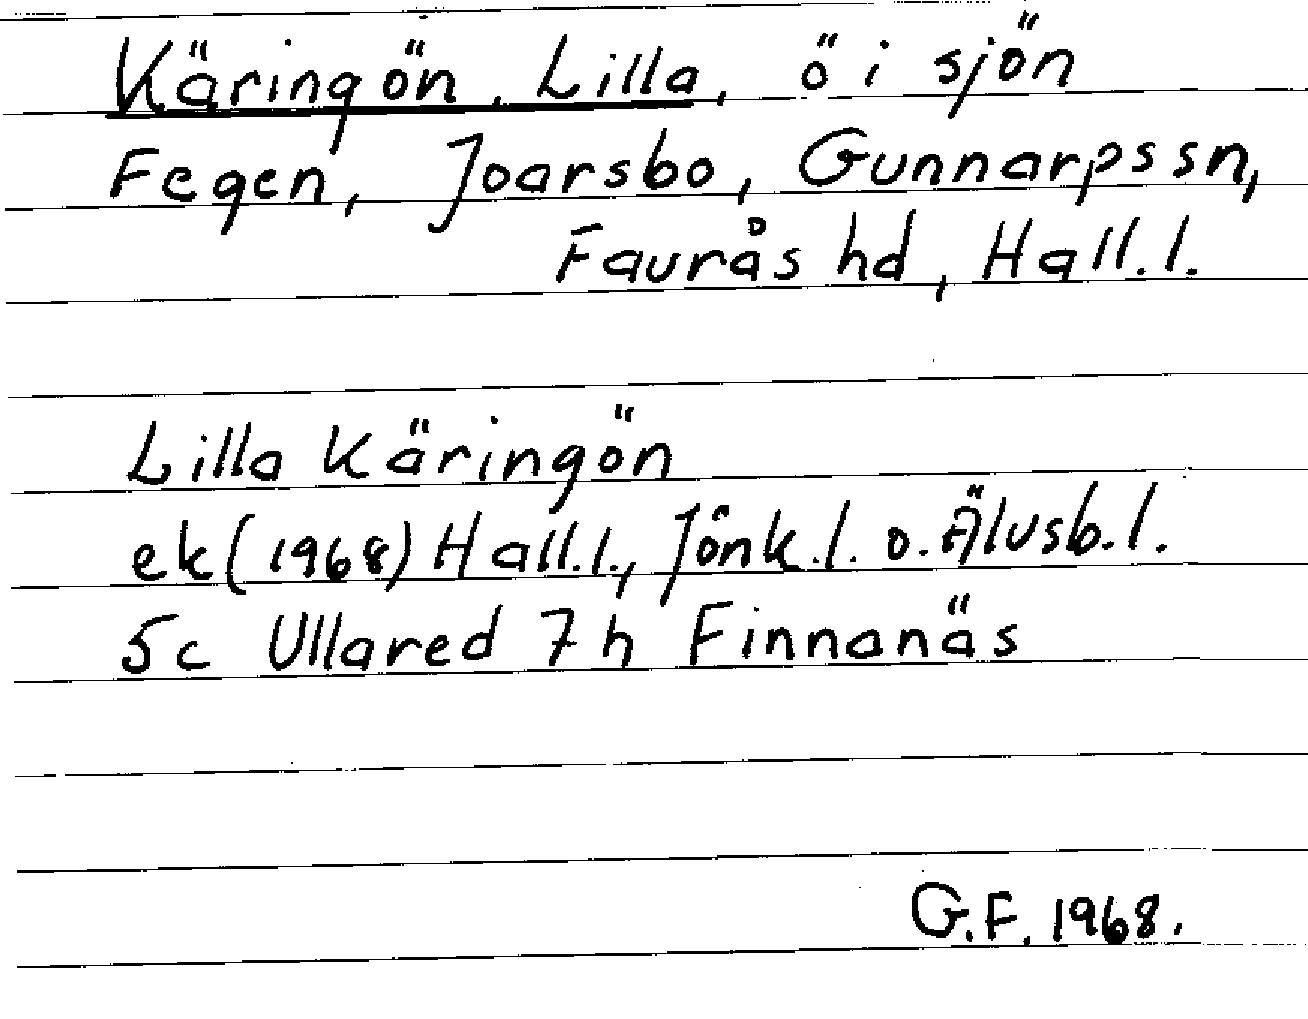 Käringön, Lilla, ö i sjön
Fegen, Joarsbo, Gunnarpssn,
Faurås hd, Hall.l.
Lilla Käringön
ek (1968) Hall.l., Jönk.l. o. Älvsb.l.
5c Ullared 7h Finnanäs
G.F. 1968.